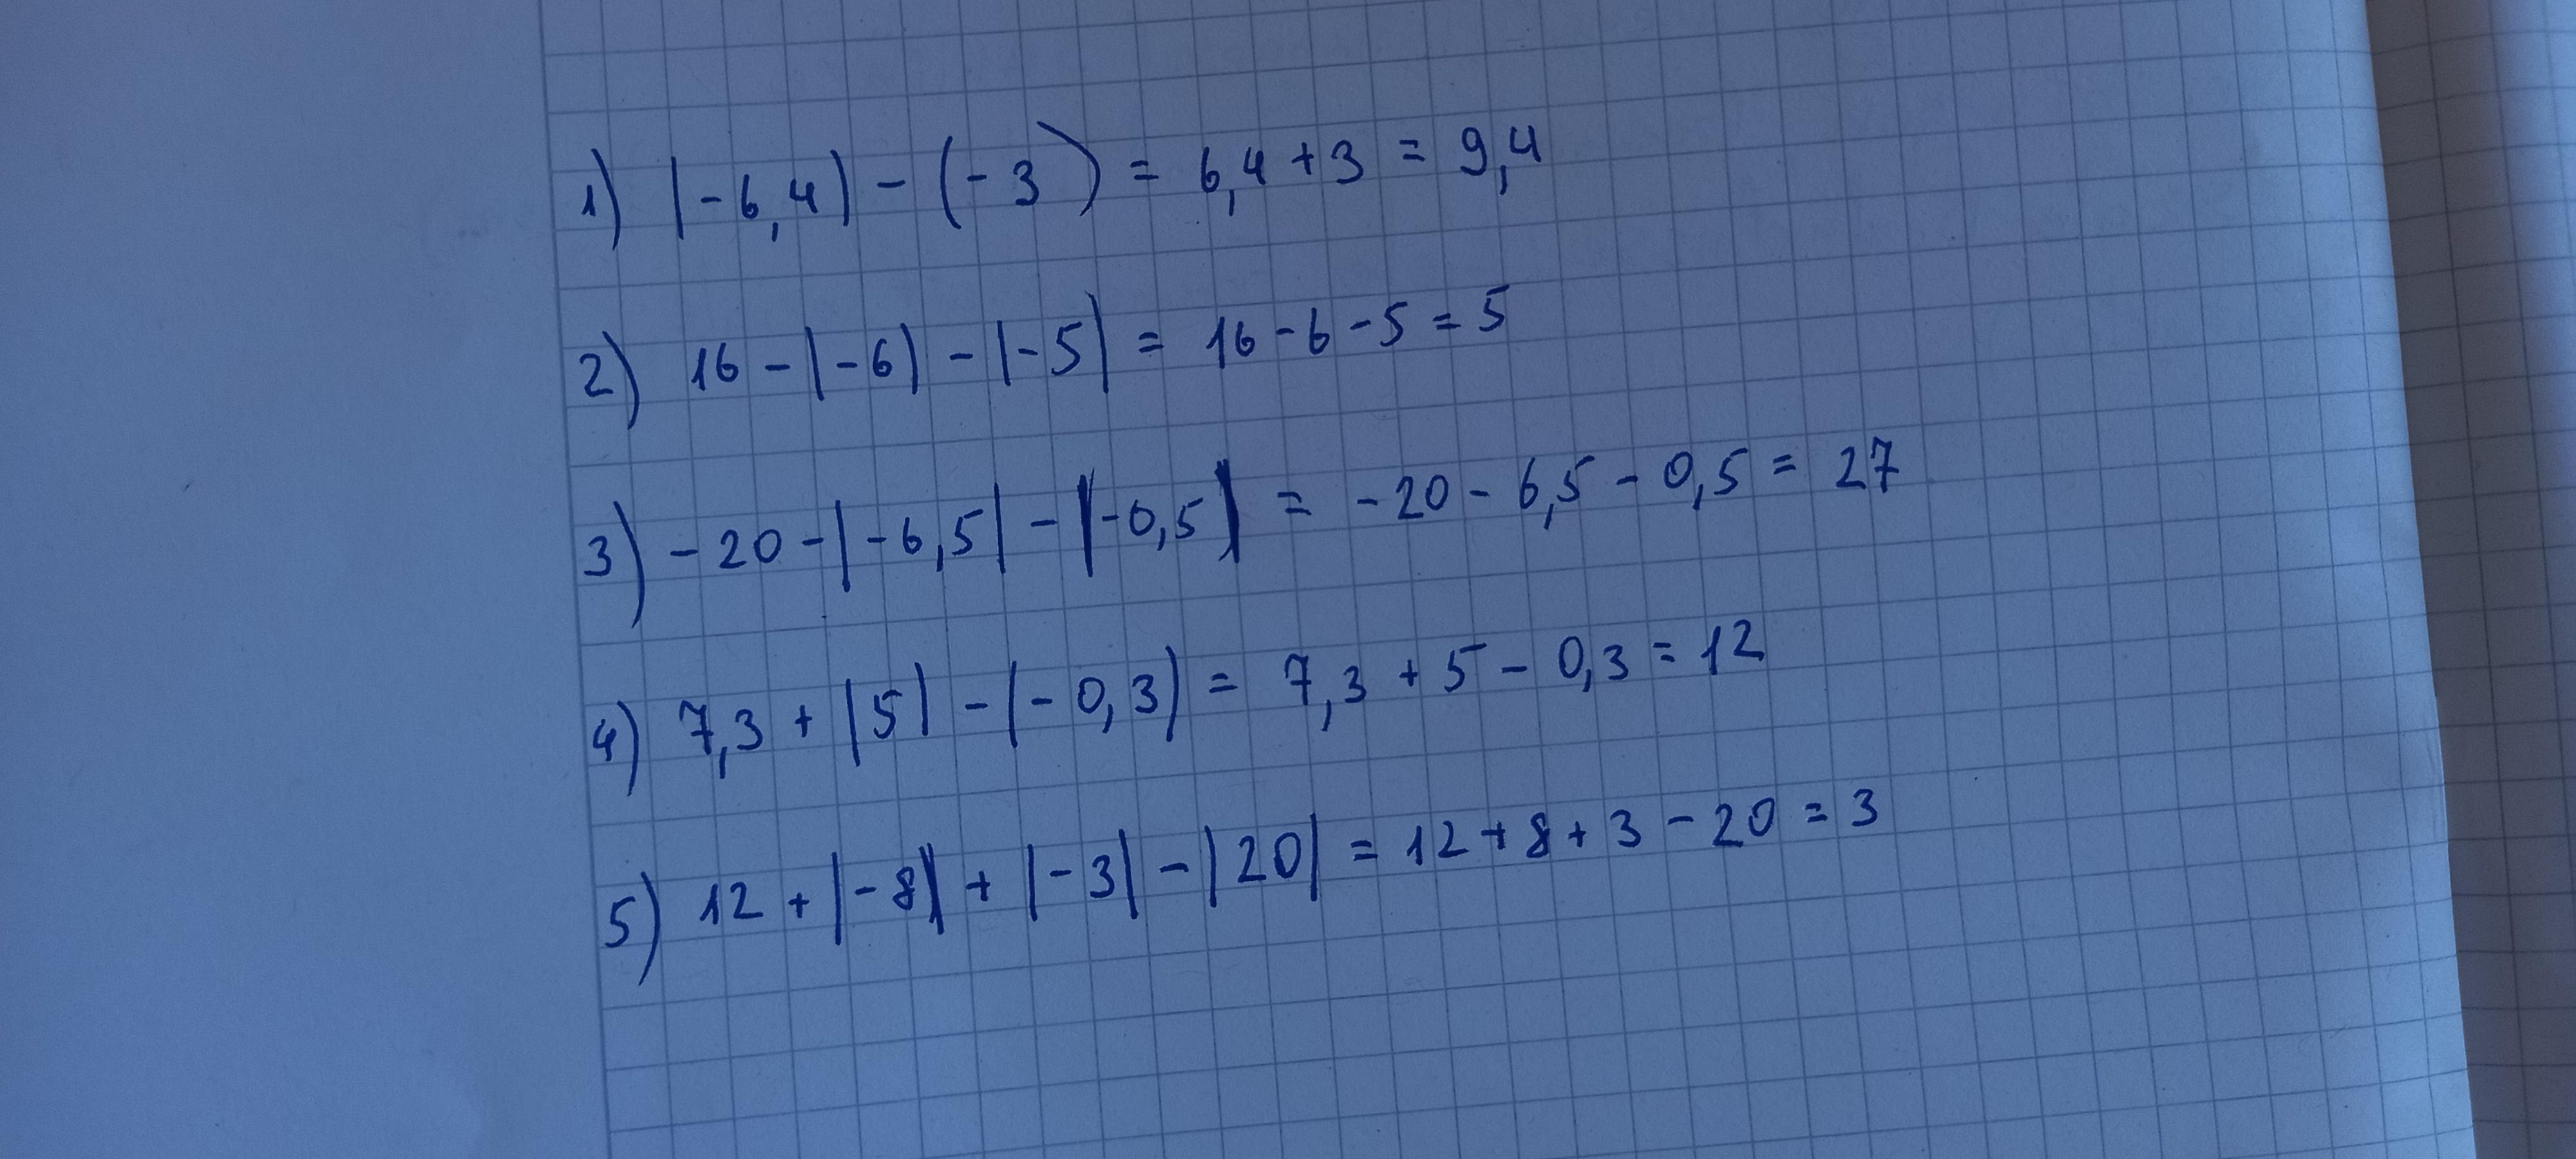 1) |-6,4| - (-3) = 6,4 + 3 = 9,4
2) 16 - |-6| - |-5| = 16 - 6 - 5 = 5
3) -20 - |-6,5| - |-0,5| = -20 - 6,5 - 0,5 = 27
4) 7,3 + |5| - |-0,3| = 7,3 + 5 - 0,3 = 12
5) 12 + |-8| + |-3| - |20| = 12 + 8 + 3 - 20 = 3